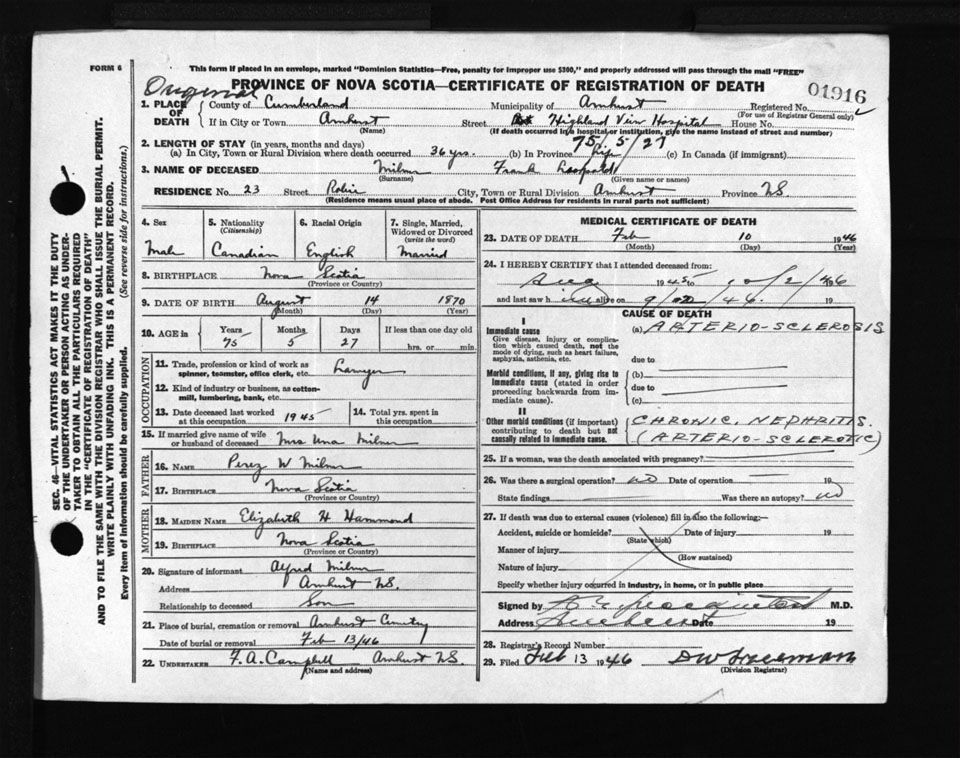 FORM 6
This form if placed in an envelope, marked "Dominion Statistics—Free, penalty for improper use $300," and properly addressed will pass through the mail "FREE"
Original
PROVINCE OF NOVA SCOTIA—CERTIFICATE OF REGISTRATION OF DEATH
01916
1. PLACE OF DEATH County of Cumberland Municipality of Amherst Registered No.
(For use of Registrar General only)
If in City or Town Amherst Street Highland View Hospital House No.
(Name) (If death occurred in a hospital or institution, give the name instead of street and number)
2. LENGTH OF STAY (in years, months and days) 75/5/27
(a) In City, Town or Rural Division where death occurred 36 yrs. (b) In Province Life (c) In Canada (if immigrant)
3. NAME OF DECEASED Milner Frank Leopold
(Surname) (Given name or names)
RESIDENCE No. 23 Street Robie City, Town or Rural Division Amherst Province NS
(Residence means usual place of abode. Post Office Address for residents in rural parts not sufficient)
4. Sex
Male
5. Nationality
(Citizenship)
Canadian
6. Racial Origin
English
7. Single, Married,
Widowed or Divorced
(write the word)
Married
8. BIRTHPLACE Nova Scotia
(Province or Country)
9. DATE OF BIRTH August 14 1870
(Month) (Day) (Year)
10. AGE in Years Months Days If less than one day old
75 5 27 hrs. or min.
OCCUPATION
11. Trade, profession or kind of work as
spinner, teamster, office clerk, etc. Lawyer
12. Kind of industry or business, as cotton-
mill, lumbering, bank, etc.
13. Date deceased last worked
at this occupation 1945
14. Total yrs. spent in
this occupation
15. If married give name of wife
or husband of deceased Mrs Una Milner
FATHER
16. NAME Perez W Milner
17. BIRTHPLACE Nova Scotia
(Province or Country)
MOTHER
18. MAIDEN NAME Elizabeth H Hammond
19. BIRTHPLACE Nova Scotia
(Province or Country)
20. Signature of informant Alfred Milner
Address Amherst NS.
Relationship to deceased Son
21. Place of burial, cremation or removal Amherst Cemetery
Date of burial or removal Feb 13/46
22. UNDERTAKER F. A. Campbell Amherst NS.
(Name and address)
MEDICAL CERTIFICATE OF DEATH
23. DATE OF DEATH Feb 10 1946
(Month) (Day) (Year)
24. I HEREBY CERTIFY that I attended deceased from:
Aug 1945 to 10/2/46 19
and last saw h im alive on 46. 19
CAUSE OF DEATH
I
Immediate cause
Give disease, injury or complica-
tion which caused death, not the
mode of dying, such as heart failure,
asphyxia, asthenia, etc.
(a) ARTERIO-SCLEROSIS
due to
Morbid conditions, if any, giving rise to
immediate cause (stated in order
proceeding backwards from im-
mediate cause).
(b)
due to
(c)
II
Other morbid conditions (if important)
contributing to death but not
causally related to immediate cause.
CHRONIC. NEPHRITIS.
(ARTERIO-SCLEROTIC)
25. If a woman, was the death associated with pregnancy?
26. Was there a surgical operation? NO Date of operation 19
State findings Was there an autopsy? NO
27. If death was due to external causes (violence) fill in also the following:—
Accident, suicide or homicide? Date of injury 19
(State which)
Manner of injury
(How sustained)
Nature of injury
Specify whether injury occurred in industry, in home, or in public place
Signed by M.D.
Address Amherst Date 19
28. Registrar's Record Number
29. Filed Feb 13 1946 D W Freeman
(Division Registrar)
SEC. 46—VITAL STATISTICS ACT MAKES IT THE DUTY
OF THE UNDERTAKER OR PERSON ACTING AS UNDER-
TAKER TO OBTAIN ALL THE PARTICULARS REQUIRED
IN THE "CERTIFICATE OF REGISTRATION OF DEATH"
AND TO FILE THE SAME WITH THE DIVISION REGISTRAR WHO SHALL ISSUE THE BURIAL PERMIT.
WRITE PLAINLY WITH UNFADING INK. THIS IS A PERMANENT RECORD.
Every item of information should be carefully supplied. (See reverse side for instructions.)